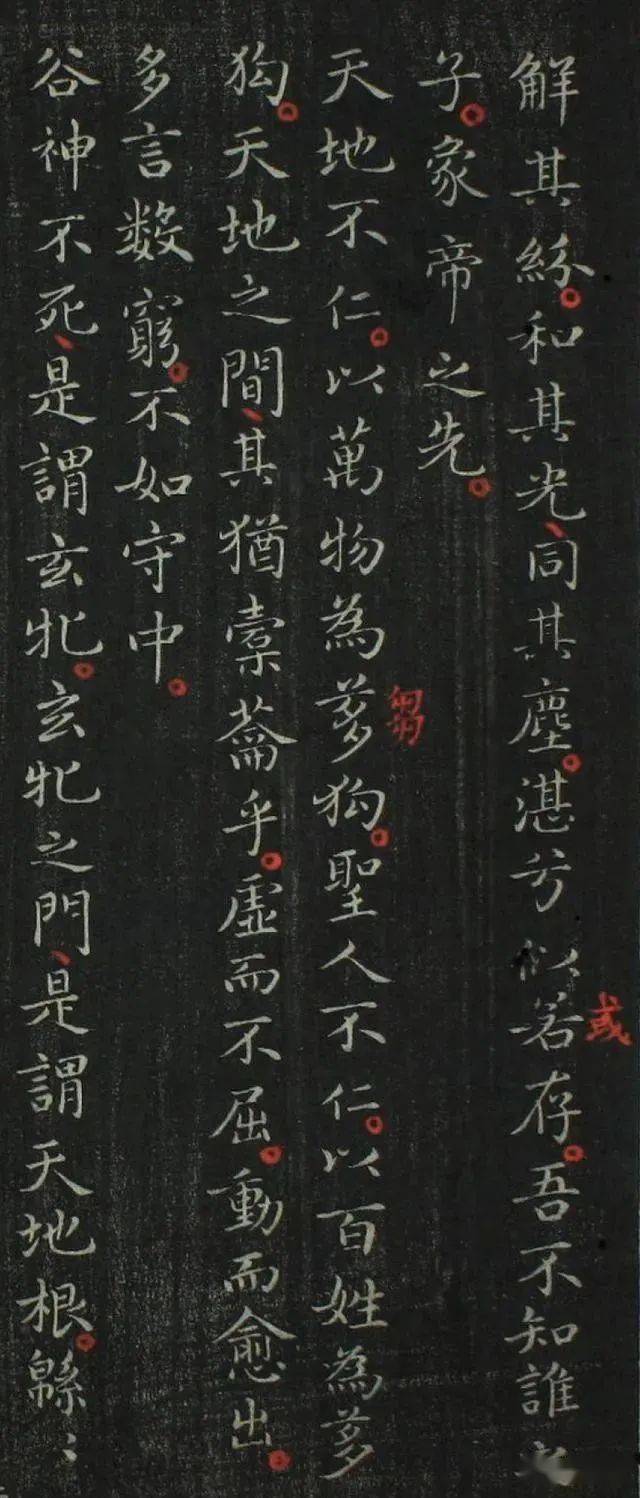 解其紛和其光同其塵湛兮似若存吾不知誰之
或
子象帝之先
天地不仁以萬物為芻狗聖人不仁以百姓為芻
芻
狗天地之間其猶橐籥乎虛而不屈動而愈出
多言數窮不如守中
谷神不死是謂玄牝玄牝之門是謂天地根緜〻